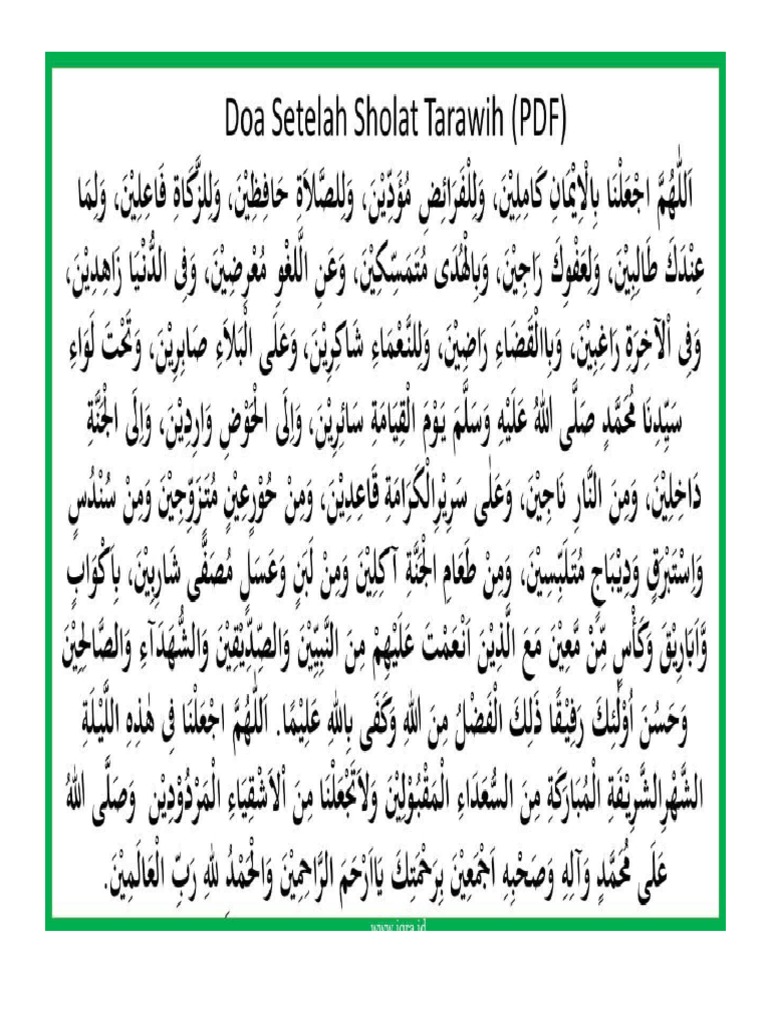 Doa Setelah Sholat Tarawih (PDF)
اَللّٰهُمَّ اجْعَلْنَا بِالْاِيْمَانِ كَامِلِيْنَ، وَلِلْفَرَائِضِ مُؤَدِّيْنَ، وَلِلصَّلاَةِ حَافِظِيْنَ، وَلِلزَّكَاةِ فَاعِلِيْنَ، وَلِمَا
عِنْدَكَ طَالِبِيْنَ، وَلِعَفْوِكَ رَاجِيْنَ، وَبِالْهُدَى مُتَمَسِّكِيْنَ، وَعَنِ الَّلغْوِ مُعْرِضِيْنَ، وَفِى الدُّنْيَا زَاهِدِيْنَ،
وَفِى اْلآخِرَةِ رَاغِبِيْنَ، وَبِاالْقَضَاءِ رَاضِيْنَ، وَلِلنَّعْمَاءِ شَاكِرِيْنَ، وَعَلَى الْبَلاَءِ صَابِرِيْنَ، وَتَحْتَ لَوَاءِ
سَيِّدِنَا مُحَمَّدٍ صَلَّى اللهُ عَلَيْهِ وَسَلَّمَ يَوْمَ الْقِيَامَةِ سَائِرِيْنَ، وَاِلَى الْحَوْضِ وَارِدِيْنَ، وَاِلَى الْجَنَّةِ
دَاخِلِيْنَ، وَمِنَ النَّارِ نَاجِيْنَ، وَعَلٰى سَرِيْرِالْكَرَامَةِ قَاعِدِيْنَ، وَمِنْ حُوْرِعِيْنٍ مُتَزَوِّجِيْنَ وَمِنْ سُنْدُسٍ
وَاسْتَبْرَقٍ وَدِيْبَاجٍ مُتَلَبِّسِيْنَ، وَمِنْ طَعَامِ الْجَنَّةِ آكِلِيْنَ وَمِنْ لَبَنٍ وَعَسَلٍ مُصَفًّى شَارِبِيْنَ، بِاَكْوَابٍ
وَّاَبَارِيْقَ وَكَأْسٍ مِّنْ مَّعِيْنَ مَعَ الَّذِيْنَ اَنْعَمْتَ عَلَيْهِمْ مِنَ النَّبِيِّيْنَ وَالصِّدِّيْقِيْنَ وَالشُّهَدَآءِ وَالصَّالِحِيْنَ
وَحَسُنَ اُوْلٰئِكَ رَفِيْقًا ذَلِكَ الْفَضْلُ مِنَ اللهِ وَكَفَى بِاللهِ عَلِيْمًا. اَللّٰهُمَّ اجْعَلْنَا فِى هٰذِهِ اللَّيْلَةِ
الشَّهْرِالشَّرِيْفَةِ الْمُبَارَكَةِ مِنَ السُّعَدَاءِ الْمَقْبُوْلِيْنَ وَلاَتَجْعَلْنَا مِنَ اْلاَشْقِيَاءِ الْمَرْدُوْدِيْنَ وَصَلَّى اللهُ
عَلَى مُحَمَّدٍ وَآلِهِ وَصَحْبِهِ اَجْمَعِيْنَ بِرَحْمَتِكَ يَااَرْحَمَ الرَّاحِمِيْنَ وَالْحَمْدُ لِلهِ رَبِّ الْعَالَمِيْنَ.
www.iqra.id